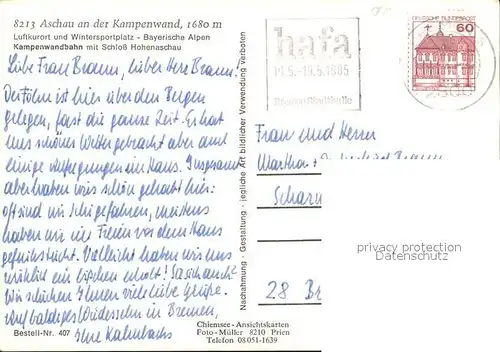 8213 Aschau an der Kampenwand, 1680 m
Luftkurort und Wintersportplatz - Bayerische Alpen
Kampenwandbahn mit Schloß Hohenaschau
Liebe Frau Braum, lieber Herr Braum!
Der Föhn ist hier über den Bergen
gelegen, fast die ganze Zeit. Er hat
uns schönes Wetter gebracht aber auch
einige Aufregungen im Haus. Insgesamt
aber haben wir's schön gehabt hier:
oft sind wir Schi gefahren, meistens
haben wir im Freien vor dem Haus
gefrühstückt. Vielleicht haben wir uns
wirklich ein bißchen erholt! Sie sich auch?
Wir schicken Ihnen viele liebe Grüße.
Auf baldiges Wiedersehn in Bremen,
Ihre Kalenbachs
Bestell-Nr. 407
Nachahmung - Gestaltung - jegliche Art bildlicher Verwendung verboten
Chiemsee-Ansichtskarten
Foto-Müller 8210 Prien
Telefon 08051-1639
hafa
11.5.-19.5.1985
Bremen Stadthalle
DEUTSCHE BUNDESPOST
60
Frau und Herrn
Scharn
28 Br
privacy protection
www.delcampe.net